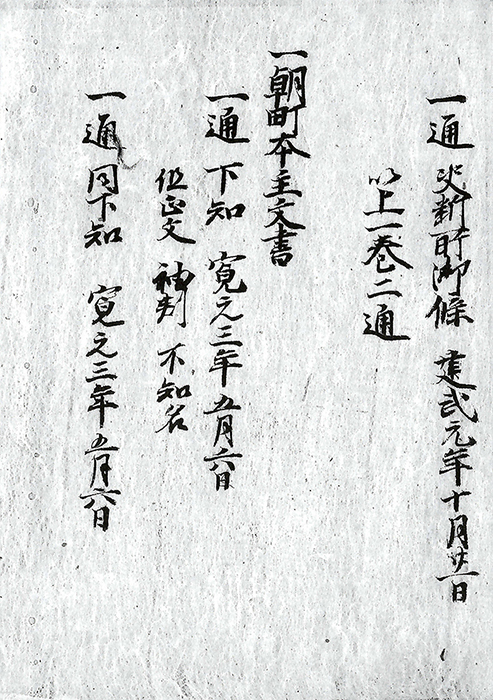 一通 文新所御條 建武元年十月廿一日
以上一巻二通
一朝町本主文書
一通 下知 寛元三年五月六日
但正文 袖判 不知名
一通 同下知 寛元三年五月六日